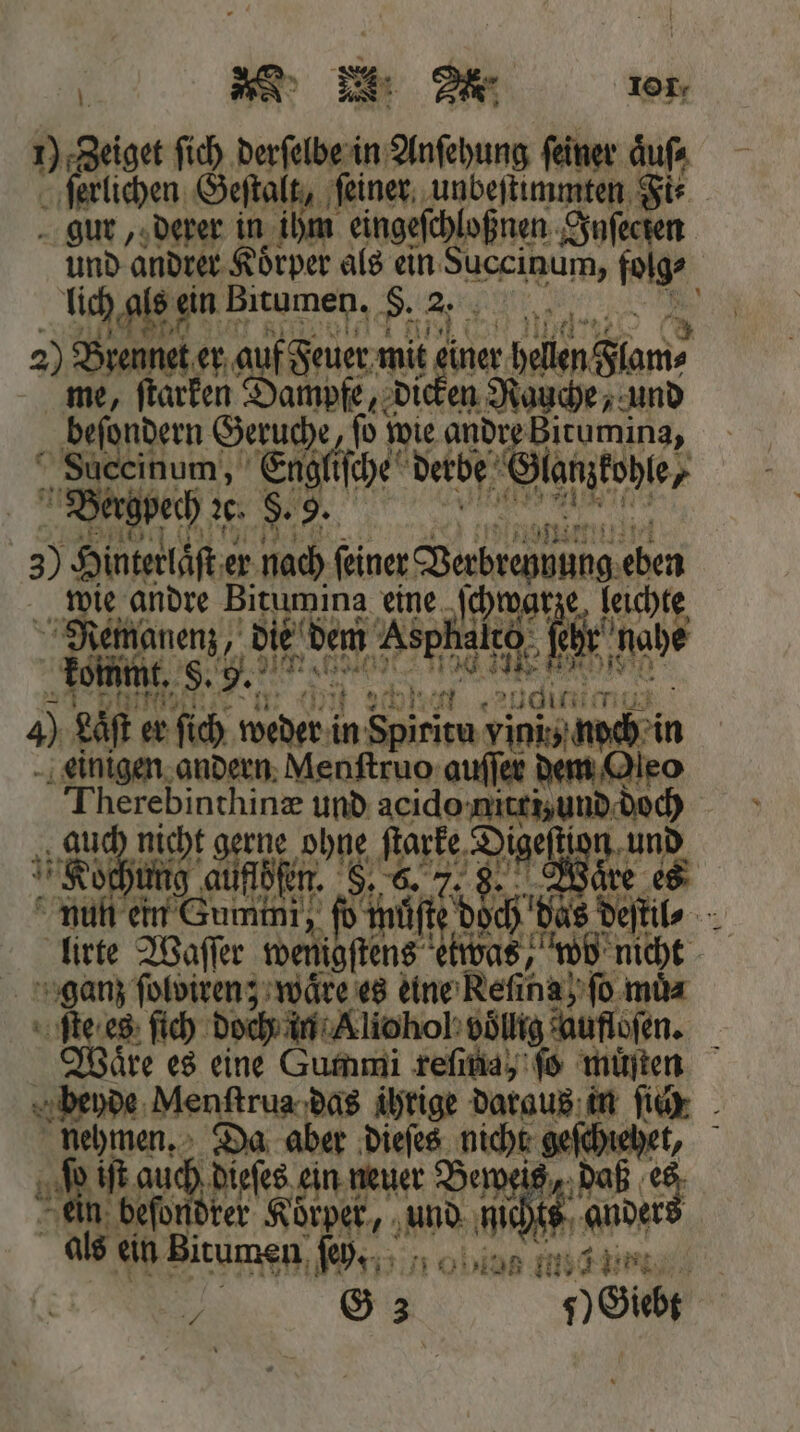 101.
1) Zeiget ſich derſelbe in Anſehung ſeiner aͤuſ⸗
ſerlichen Geſtalt, ſeiner unbeſtimmten Fi⸗
gur, derer in ihm eingeſchloßnen Inſecten
und andrer Koͤrper als ein Succinum, folg⸗
lich als ein Bitumen. §. 2.
2) Brennet er auf Feuer mit einer hellen Flam⸗
me, ſtarken Dampfe, dicken Rauche, und
beſondern Geruche, ſo wie andre Bitumina,
Succinum, Engliſche derbe Glanzkohle,
Bergpech ꝛc. §. 9.
3) Hinterlaͤſt er nach ſeiner Verbrennung eben
wie andre Bitumina eine ſchwarze, leichte
Remanenz, die dem Asphalto ſehr nahe
kommt. §. 9.
4) Laͤſt er ſich weder in Spiritu vini, noch in
einigen andern Menſtruo auſſer dem Oleo
Therebinthinæ und acido nitri, und doch
auch nicht gerne ohne ſtarke Digeſtion und
Kochung aufloͤſen. §. 6. 7. 8. Waͤre es
nun ein Gummi, ſo muͤſte doch das deſtil⸗
lirte Waſſer wenigſtens etwas, wo nicht
ganz ſolviren; waͤre es eine Reſina, ſo muͤ⸗
ſte es ſich doch in Aliohol voͤllig aufloſen.
Waͤre es eine Gummi reſina, ſo muͤſten
beyde Menſtrua das ihrige daraus in ſich
nehmen. Da aber dieſes nicht geſchiehet,
ſo iſt auch dieſes ein neuer Beweis, daß es
ein beſondrer Koͤrper, und nichts anders
als ein Bitumen ſey.
G 3 5) Giebt